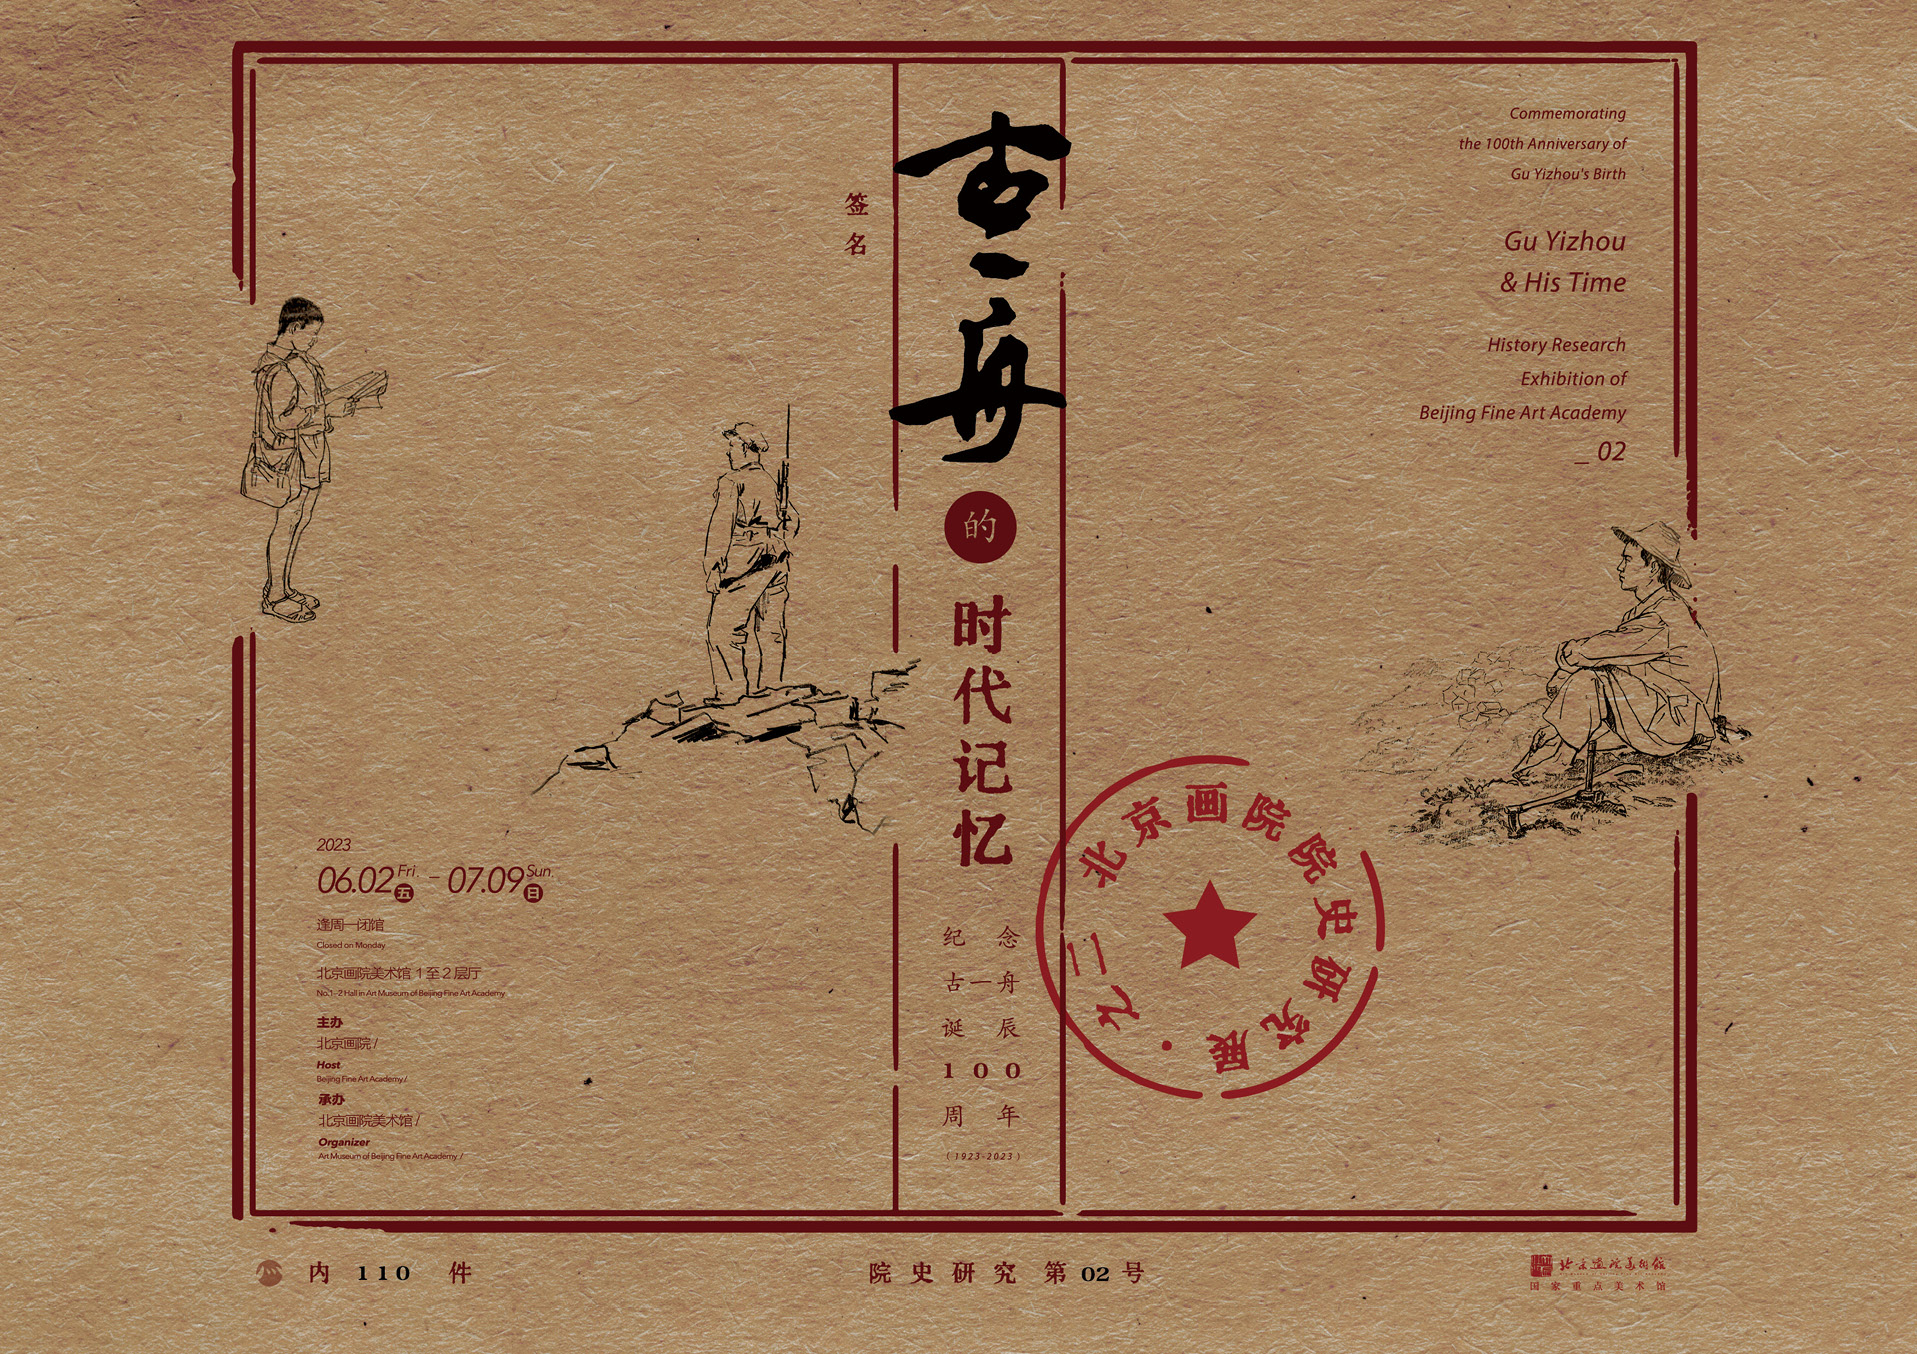 签名
古一舟
的
时代记忆
纪念
古一舟
诞辰
100
周年
(1923-2023)
Commemorating
the 100th Anniversary of
Gu Yizhou's Birth
Gu Yizhou
& His Time
History Research
Exhibition of
Beijing Fine Art Academy
_ 02
2023
06.02 Fri. 五 – 07.09 Sun. 日
逢周一闭馆
Closed on Monday
北京画院美术馆 1 至 2 层厅
No.1-2 Hall in Art Museum of Beijing Fine Art Academy
主办
北京画院 /
Host
Beijing Fine Art Academy /
承办
北京画院美术馆 /
Organizer
Art Museum of Beijing Fine Art Academy /
北京画院院史研究展·之二
内 110 件
院史研究 第 02 号
北京画院美术馆
国家重点美术馆